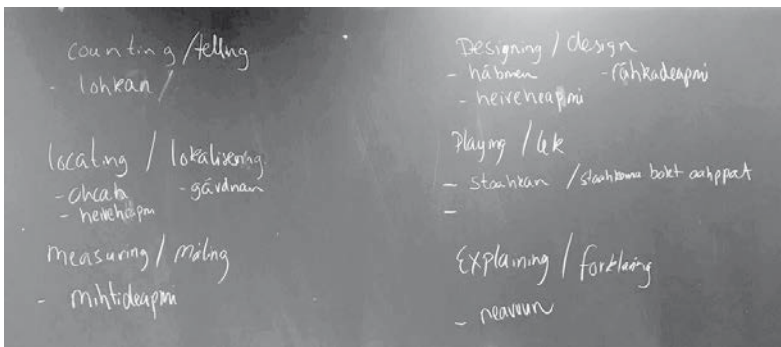 counting / telling
- lohkan /
locating / lokalisering
- gávdnan
- heiveheapmi
measuring / måling
- mihtideapmi
Designing / design
- hábmen - ráhkadeapmi
- heiveheapmi
Playing / lek
- stoahkan / stoahkama bokt oahppat
-
Explaining / forklaring
- neavvun